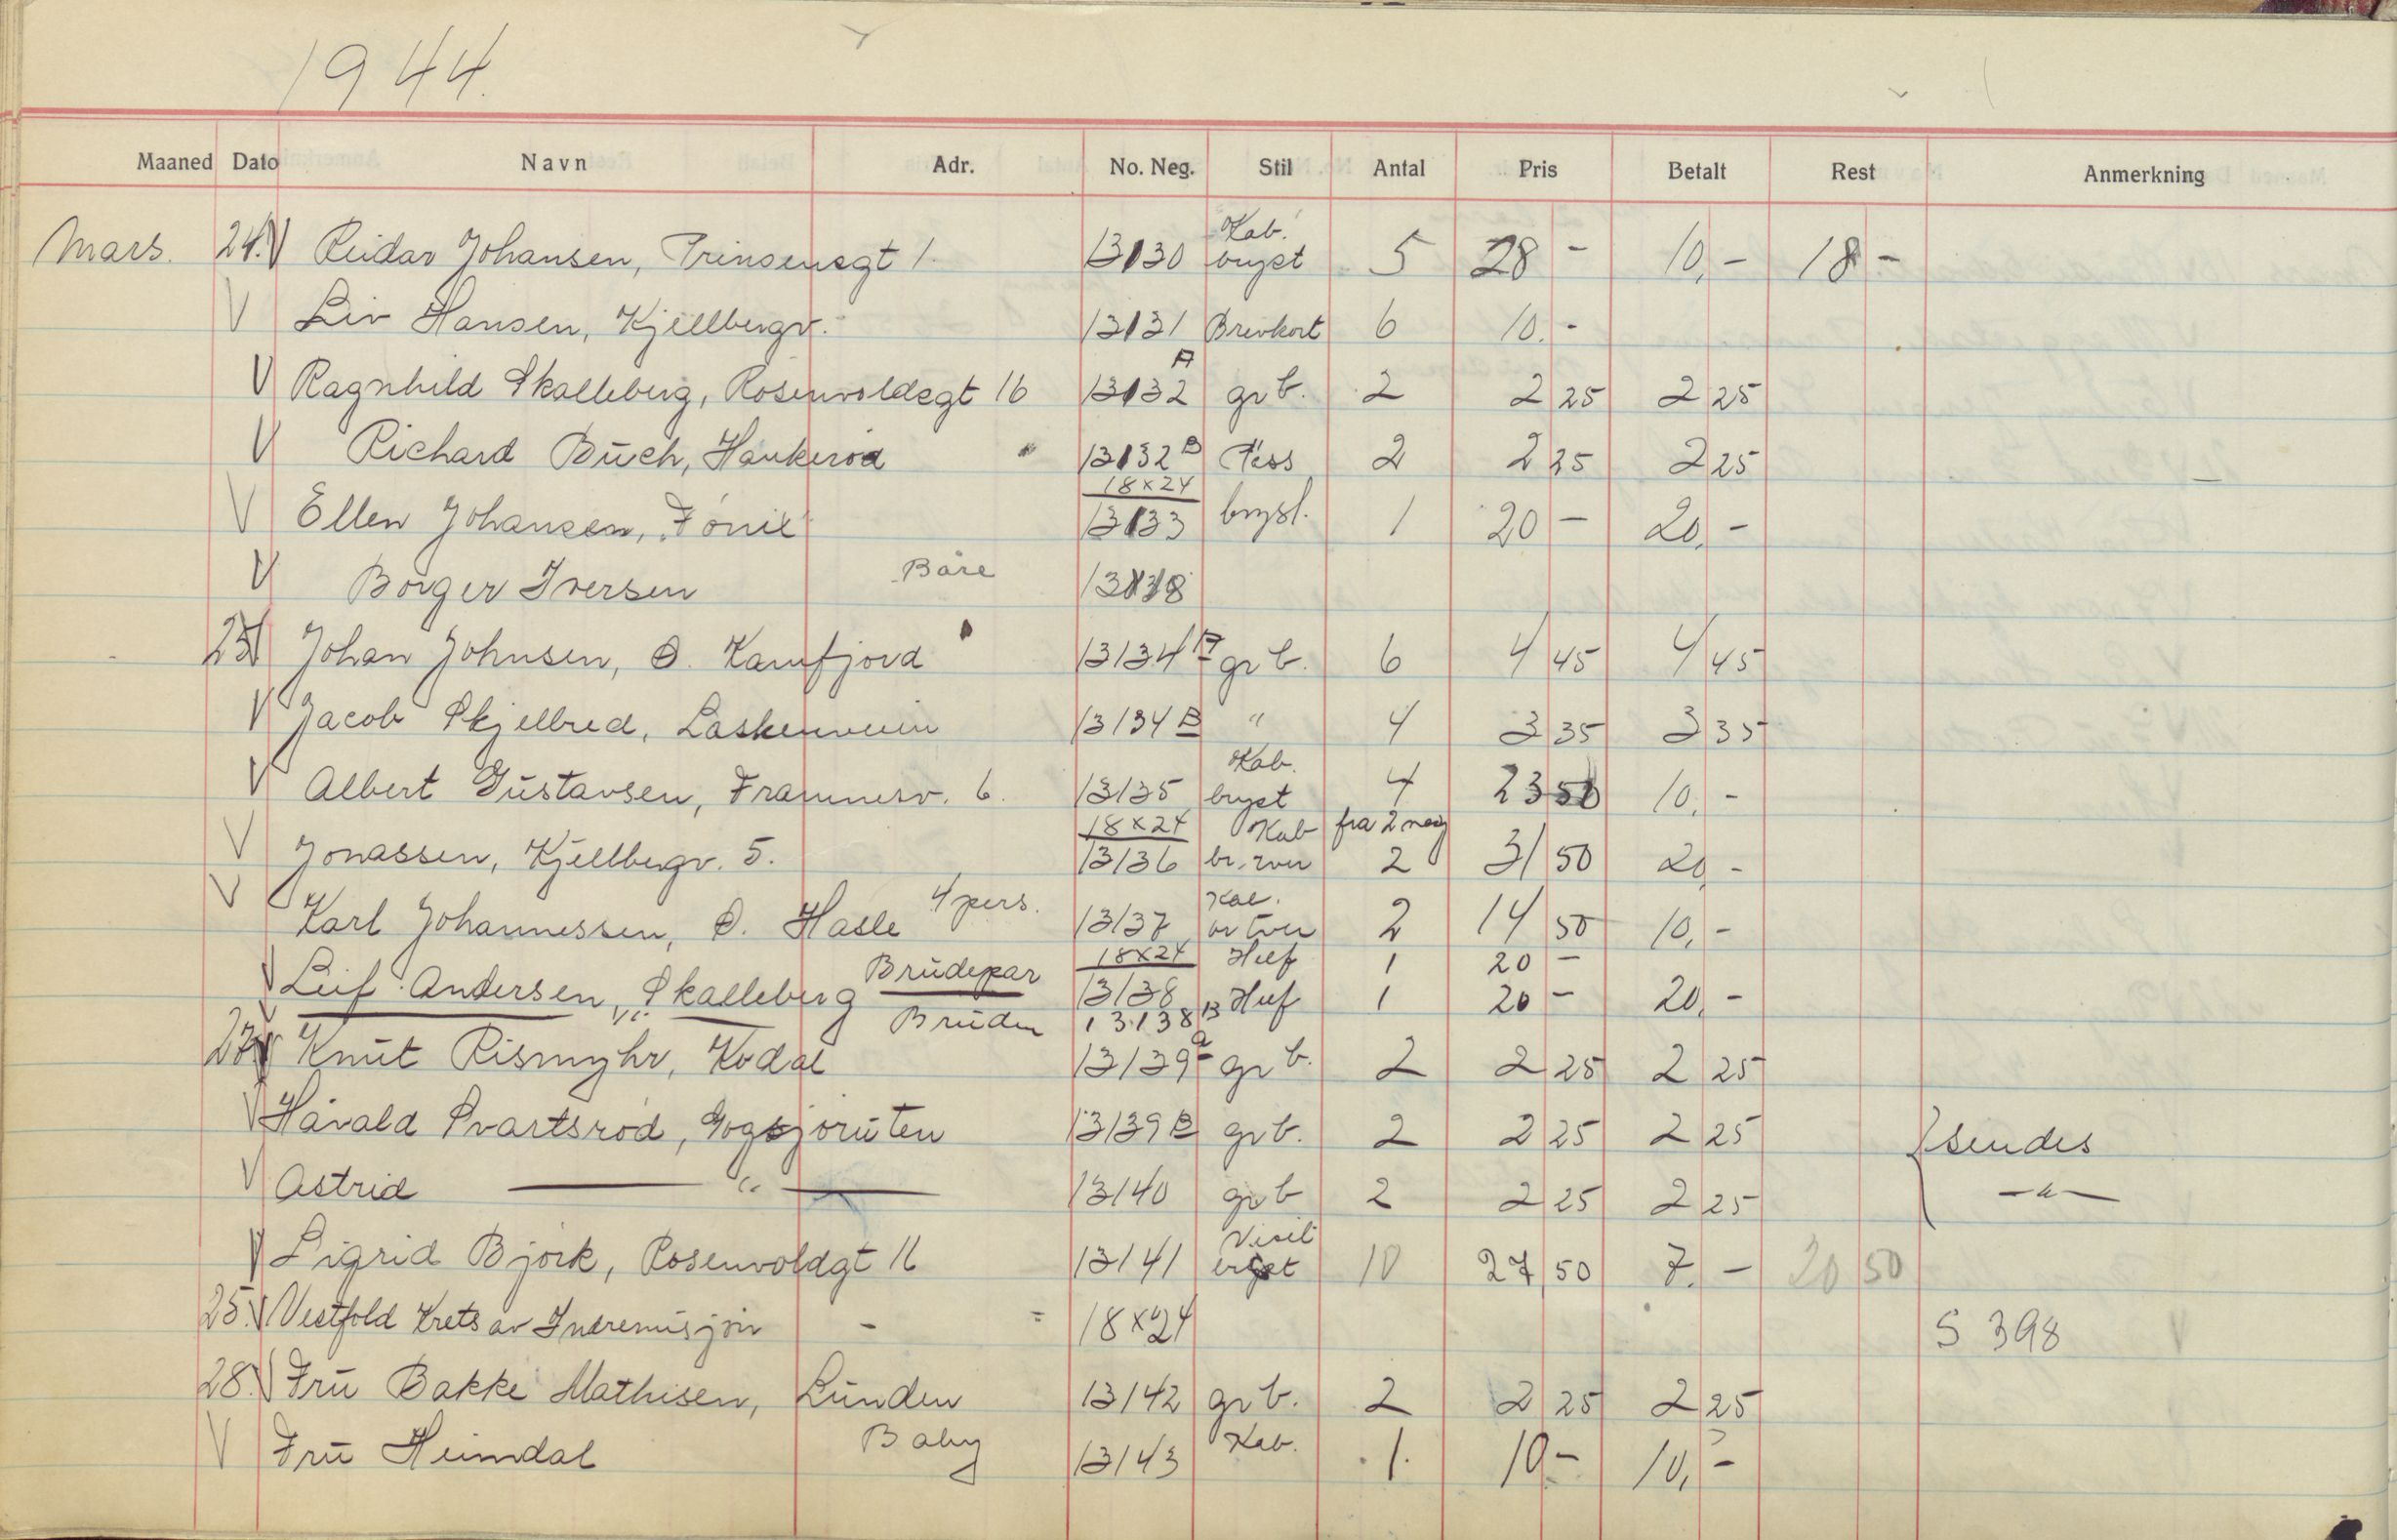 1944.
Maaned Dato Navn Adr. No. Neg. Stil Antal Pris Betalt Rest Anmerkning
Mars. 24. V Reidar Johansen, Prinsensgt 1. 13130 Kab. bryst 5 28 - 10,- 18 -
V Liv Hansen, Kjellbergv. 13131 Brevkort 6 10.-
V Ragnhild Skalleberg, Rosenvoldsgt 16 13132 A gr b. 2 2 25 2 25
V Richard Buch, Haukerød 13132 B Pass 2 2 25 2 25
V Ellen Johansen, Fönix 18x24 13133 bryst. 1 20 - 20,-
V Borger Iversen Båre
25 V Johan Johnsen, Ø. Kamfjord 13134 A gr b. 6 4 45 4 45
V Jacob Skjelbred, Laskenveien 13134 B " 4 3 35 3 35
V Albert Gustavsen, Framnesv. 6. 13135 Kab. bryst 4 23 50 10,-
V Jonassen, Kjellbergv. 5. 18x24 13136 Kab fra 2 neg 2 31 50 20,-
V Karl Johannessen, Ø. Hasle 4 pers. 13137 2 14 50 10,-
V Leif Andersen, Skalleberg Brudepar 18x24 13138 Hef 1 20 -
" Bruden 13138 B Hef 1 20 - 20,-
27. V Knut Rismyhr, Kodal 13139 a gr b. 2 2 25 2 25
V Håvald Svartsrød, Gogsjøruten 13139 B gr b. 2 2 25 2 25 } sendes
V Astrid — " — 13140 gr b 2 2 25 2 25 — " —
V Sigrid Bjørk, Rosenvoldgt 16 13141 Visit bryst 10 27 50 7.- 20 50
25. V Vestfold Krets av Indremisjon - 18x24 S 398 V
28. V Fru Bakke Mathisen, Lunden 13142 gr b. 2 2 25 2 25
V Fru Heimdal Baby 13143 Kab. 1. 10.- 10,-